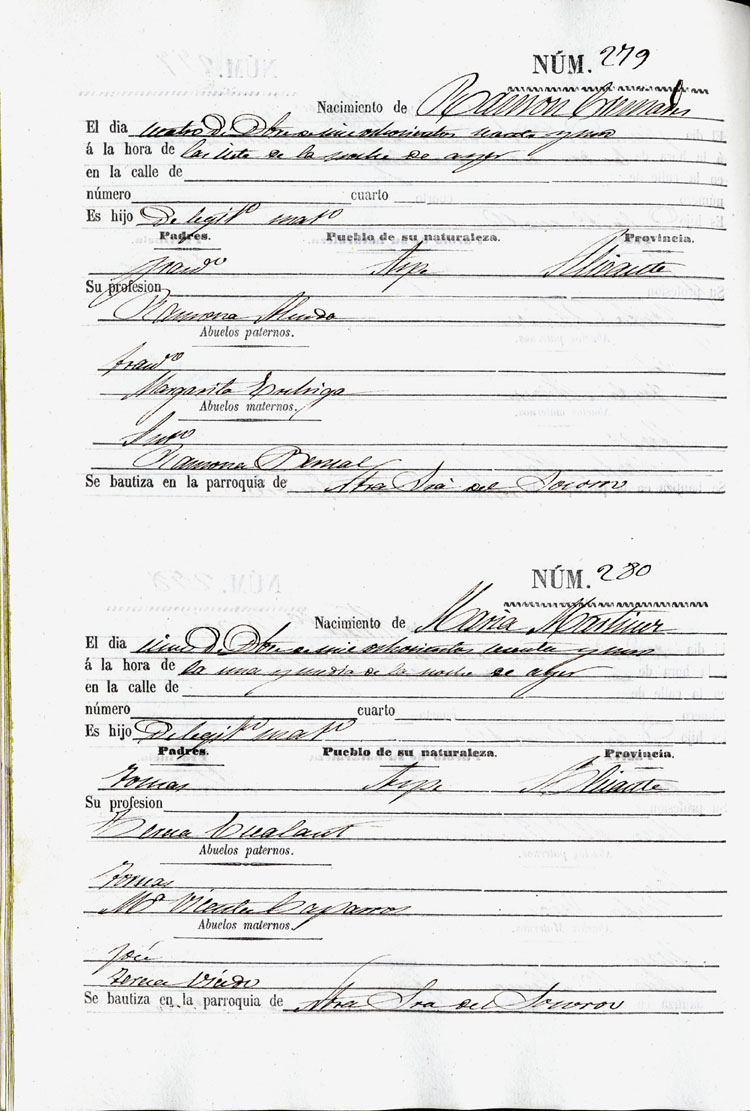 NÚM. 279
Nacimiento de Ramon
El dia cuatro de Dbre de mil ochocientos sesenta y uno
á la hora de las siete de la noche de ayer
en la calle de
número cuarto
Es hijo De legitᵒ matᵒ
Padres. Pueblo de su naturaleza. Provincia.
Franᶜᵒ Aspe Alicante
Su profesion
Ramona
Abuelos paternos.
Franᶜᵒ
Margarita
Abuelos maternos.
Antᵒ
Ramona Bernal
Se bautiza en la parroquia de Ntra Sra del Socorro
NÚM. 280
Nacimiento de Maria Martinez
El dia cinco de Dbre de mil ochocientos sesenta y uno
á la hora de la una y media de la noche de ayer
en la calle de
número cuarto
Es hijo De legitᵒ matᵒ
Padres. Pueblo de su naturaleza. Provincia.
Tomas Aspe Alicante
Su profesion
Teresa
Abuelos paternos.
Tomas
Mᵃ Vicenta Caparros
Abuelos maternos.
José
Teresa
Se bautiza en la parroquia de Ntra Sra del Socorro